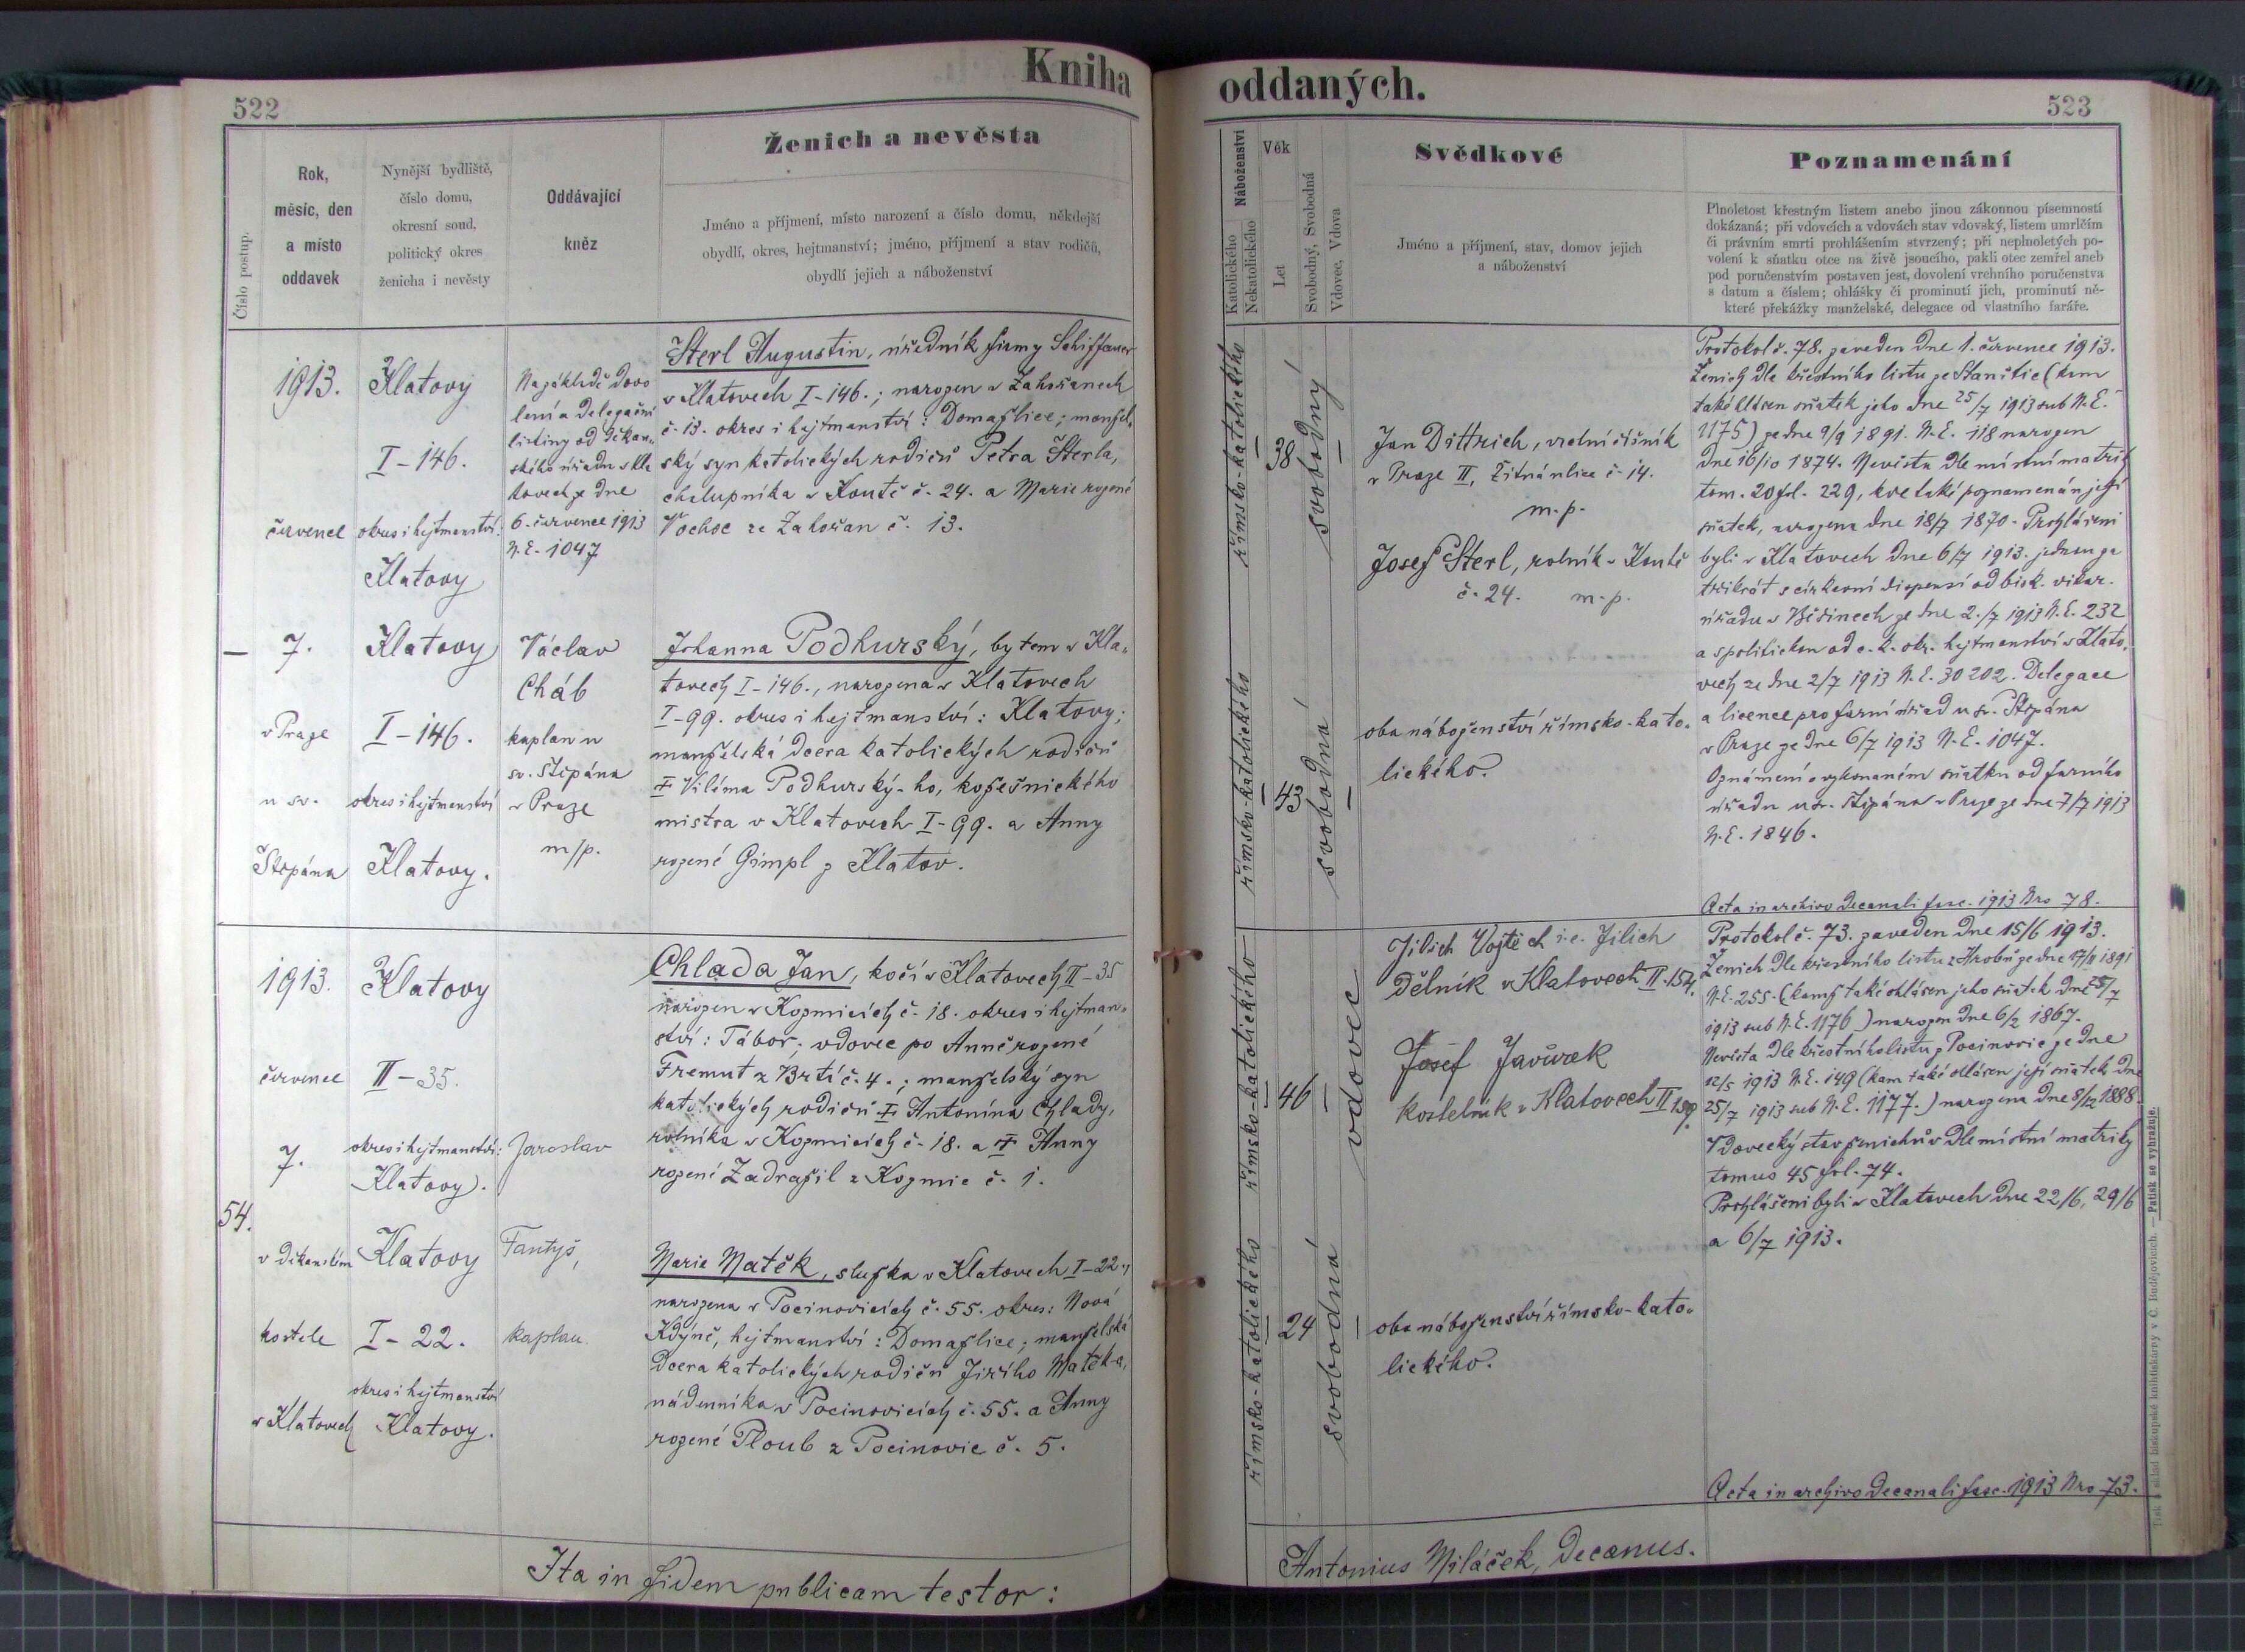 Kniha
522
Číslo postup.
Rok,
měsíc, den
a místo
oddavek
Nynější bydliště,
číslo domu,
okresní soud,
politický okres
ženicha i nevěsty
Oddávající
kněz
Ženich a nevěsta
Jméno a příjmení, místo narození a číslo domu, někdejší
obydlí, okres, hejtmanství; jméno, příjmení a stav rodičů,
obydlí jejich a náboženství
1913.
červenec
7.
v Praze
u sv.
Štěpána
Klatovy
I-146.
okres i hejtmanství:
Klatovy
Klatovy
I-146.
okres i hejtmanství
Klatovy.
Na základě dovo
lení a delegační
listiny od děkan„
ského úřadu v Kla
tovech ze dne
6. července 1913
N.E. 1047
Václav
Cháb
kaplan u
sv. Štěpána
v Praze
m/p.
Sterl Augustin, úředník firmy Schiffauer
v Klatovech I-146.; narozen v Zahořanech
č. 13. okres i hejtmanství: Domažlice; manžel„
ský syn katolických rodičů Petra Sterla,
chalupníka v Koutě č. 24. a Marie rozené
Vochoc ze Zahořan č. 13.
Johanna Podhurský, bytem v Kla„
tovech I-146., narozena v Klatovech
I-99. okres i hejtmanství: Klatovy;
manželská dcera katolických rodičů
‡ Viléma Podhurský-ho, kožešnického
mistra v Klatovech I-99. a Anny
rozené Gimpl z Klatov.
54.
1913.
červenec
7.
v děkanském
kostele
v Klatovech
Klatovy
II-35.
okres i hejtmanství:
Klatovy.
Klatovy
I-22.
okres i hejtmanství
Klatovy.
Jaroslav
Fantyš,
kaplan.
Chlada Jan, kočí v Klatovech II-35
narozen v Kozmicích č. 18. okres i hejtman„
ství: Tábor; vdovec po Anně rozené
Fremut z Brtí č. 4.; manželský syn
katolických rodičů ‡ Antonína Chlady,
rolníka v Kozmicích č. 18. a ‡ Anny
rozené Zadražil z Kozmic č. 1.
Marie Matěk, služka v Klatovech I-22.,
narozena v Pocinovicích č. 55. okres: Nová
Kdýně, hejtmanství: Domažlice; manželská
dcera katolických rodičů Jiřího Matěka,
nádenníka v Pocinovicích č. 55. a Anny
rozené Ploub z Pocinovic č. 5.
Ita in fidem publicam testor:
oddaných.
523
Náboženství
Katolického
Nekatolického
Věk
Let
Svobodný, Svobodná
Vdovec, Vdova
Svědkové
Jméno a příjmení, stav, domov jejich
a náboženství
Poznamenání
Plnoletost křestným listem anebo jinou zákonnou písemností
dokázaná; při vdovcích a vdovách stav vdovský, listem umrlčím
či právním smrti prohlášením stvrzený; při neplnoletých po-
volení k sňatku otce na živě jsoucího, pakli otec zemřel aneb
pod poručenstvím postaven jest, dovolení vrchního poručenstva
s datum a číslem; ohlášky či prominutí jich, prominutí ně-
které překážky manželské, delegace od vlastního faráře.
římsko-katolického
38
svobodný
římsko-katolického
43
svobodná
Jan Dittrich, vrchní číšník
v Praze II, Žitná ulice č. 14.
m.p.
Josef Sterl, rolník v Koutě
č. 24. m.p.
oba náboženství římsko-kato„
lického.
Protokol č. 78. zaveden dne 1. července 1913.
Ženich dle křestního listu ze Stanětic (kam
také hlášen sňatek jeho dne 25/7 1913 sub N.E.
1175) ze dne 9/9 1891. N.E. 118 narozen
dne 16/10 1874. Nevěsta dle místní matriky
tom. 20 fol. 229, kde také poznamenán její
sňatek, narozena dne 18/7 1870. Prohlášeni
byli v Klatovech dne 6/7 1913. jednou za
třikrát s církevní dispensí od bisk. vikar.
úřadu v Běšinech ze dne 2./7 1913 N.E. 232
a s politickou od c.k. okr. hejtmanství v Klato„
vech ze dne 2/7 1913 N.E. 30202. Delegace
a licence pro farní úřad u sv. Štěpána
v Praze ze dne 6/7 1913 N.E. 1047.
Oznámení o vykonaném sňatku od farního
úřadu u sv. Štěpána v Praze ze dne 7/7 1913
N.E. 1846.
Acta in archivo decanali fasc. 1913 Nro 78.
římsko-katolického
46
vdovec
římsko-katolického
24
svobodná
Jilich Vojtěch i.e. Jilich
Dělník v Klatovech II-154.
Josef Javůrek
kostelník v Klatovech II 159.
oba náboženství římsko-kato„
lického.
Protokol č. 73. zaveden dne 15/6 1913.
Ženich dle křestního listu z Hrobů ze dne 17/11 1891
N.E. 255. (kamž také ohlášen jeho sňatek dne 25/7
1913 sub N.E. 1176) narozen dne 6/2 1867.
Nevěsta dle křestního listu z Pocinovic ze dne
12/5 1913 N.E. 149 (kam také ohlášen její sňatek dne
25/7 1913 sub N.E. 1177.) narozena dne 8/12 1888.
Vdovecký stav ženichův dle místní matriky
tomus 45 fol. 74.
Prohlášeni byli v Klatovech dne 22/6, 29/6
a 6/7 1913.
Acta in archivo decanali fasc. 1913 Nro 73.
Antonius Miláček, decanus.
Tisk a sklad biskupské knihtiskárny v Č. Budějovicích. — Patisk se vyhražuje.